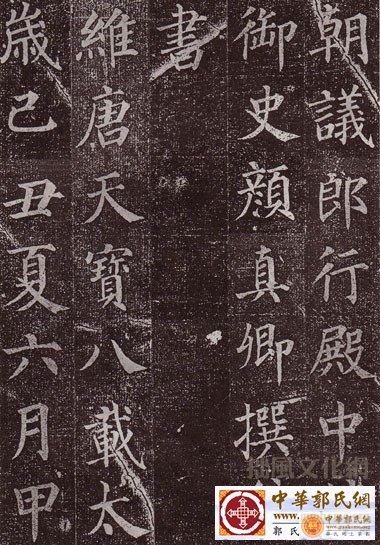 朝議郎行殿中
御史顏真卿撰
書
維唐天寶八載太
歲己丑夏六月甲
文化網
中華郭氏網
www.
郭氏